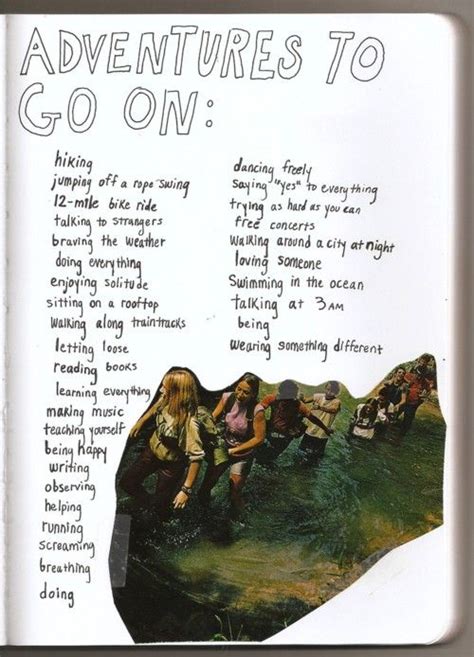 ADVENTURES TO
GO ON:
hiking
jumping off a rope swing
12-mile bike ride
talking to strangers
braving the weather
doing everything
enjoying solitude
sitting on a rooftop
walking along traintracks
letting loose
reading books
learning everything
making music
teaching yourself
being happy
writing
observing
helping
running
screaming
breathing
doing
dancing freely
saying "yes" to everything
trying as hard as you can
free concerts
walking around a city at night
loving someone
Swimming in the ocean
talking at 3 AM
being
wearing something different